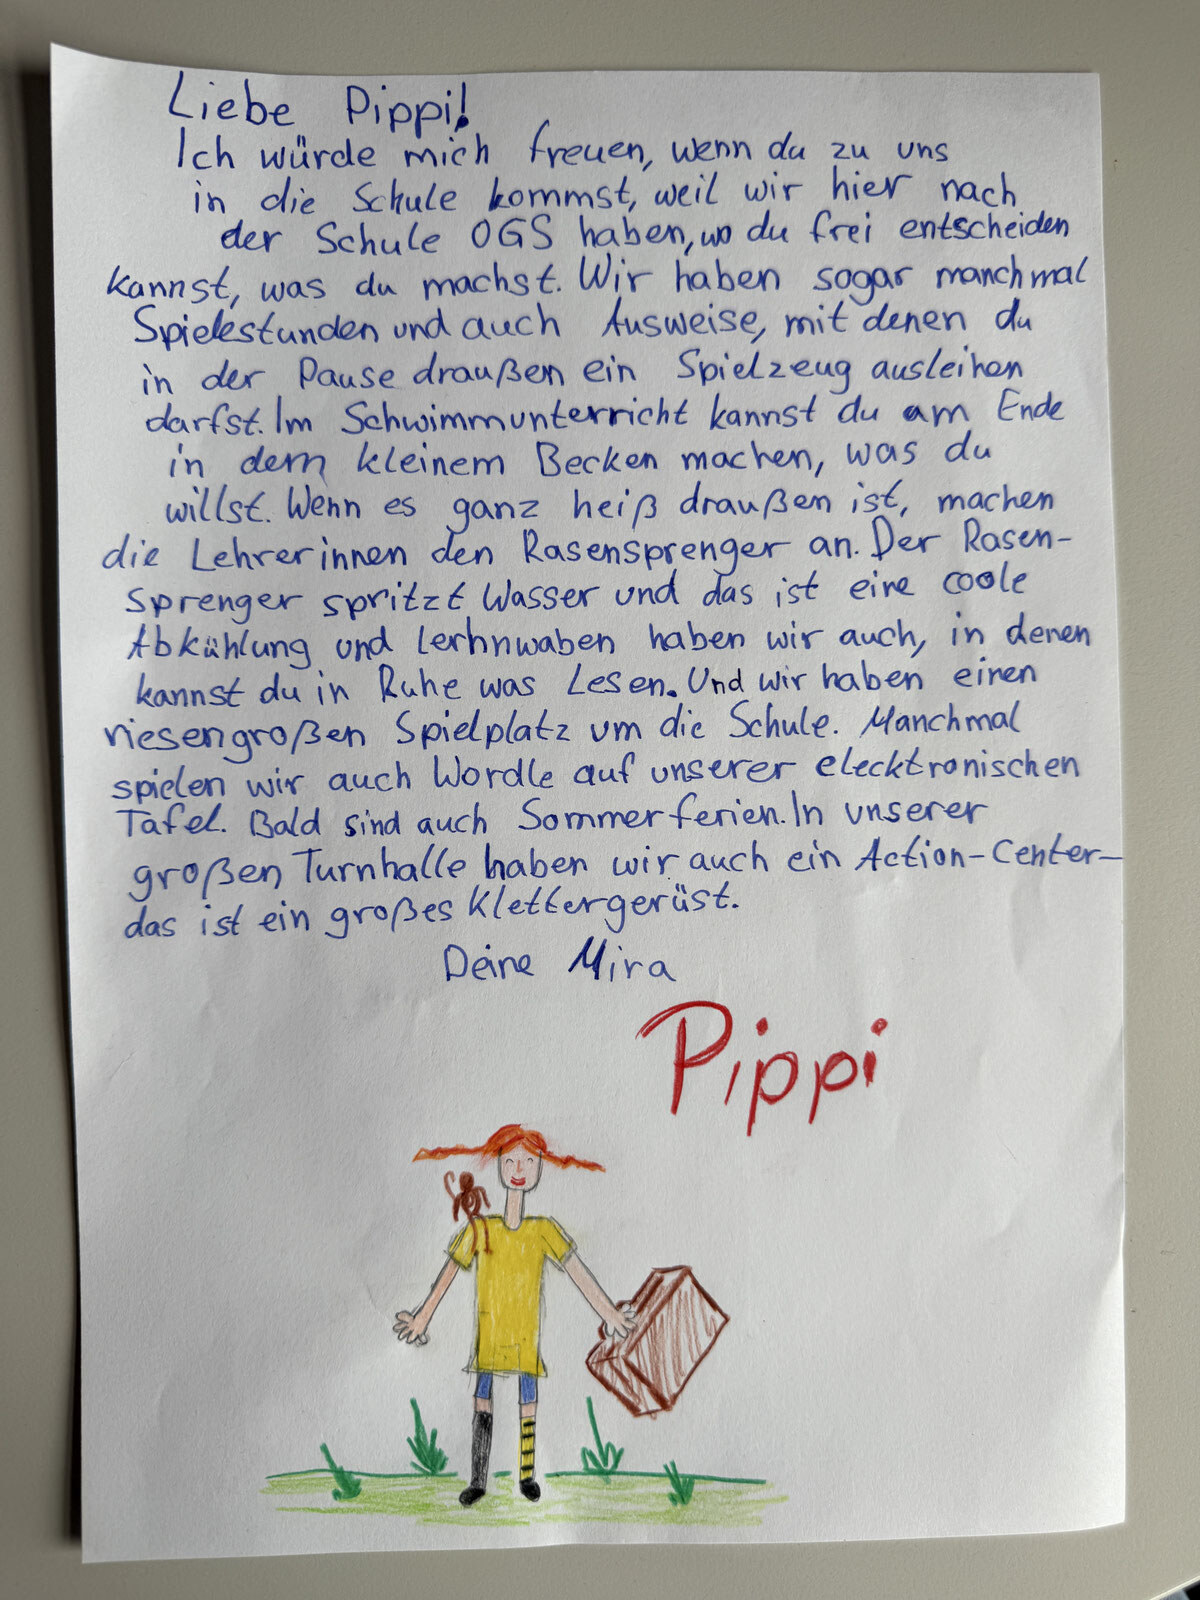 Liebe Pippi!
Ich würde mich freuen, wenn du zu uns
in die Schule kommst, weil wir hier nach
der Schule OGS haben, wo du frei entscheiden
kannst, was du machst. Wir haben sogar manchmal
Spielestunden und auch Ausweise, mit denen du
in der Pause draußen ein Spielzeug ausleihen
darfst. Im Schwimmunterricht kannst du am Ende
in dem kleinem Becken machen, was du
willst. Wenn es ganz heiß draußen ist, machen
die Lehrerinnen den Rasensprenger an. Der Rasen-
Sprenger spritzt Wasser und das ist eine coole
Abkühlung und Lerhnwaben haben wir auch, in denen
kannst du in Ruhe was Lesen. Und wir haben einen
riesengroßen Spielplatz um die Schule. Manchmal
spielen wir auch Wordle auf unserer elecktronischen
Tafel. Bald sind auch Sommerferien. In unserer
großen Turnhalle haben wir auch ein Action-Center-
das ist ein großes Klettergerüst.
Deine Mira
Pippi